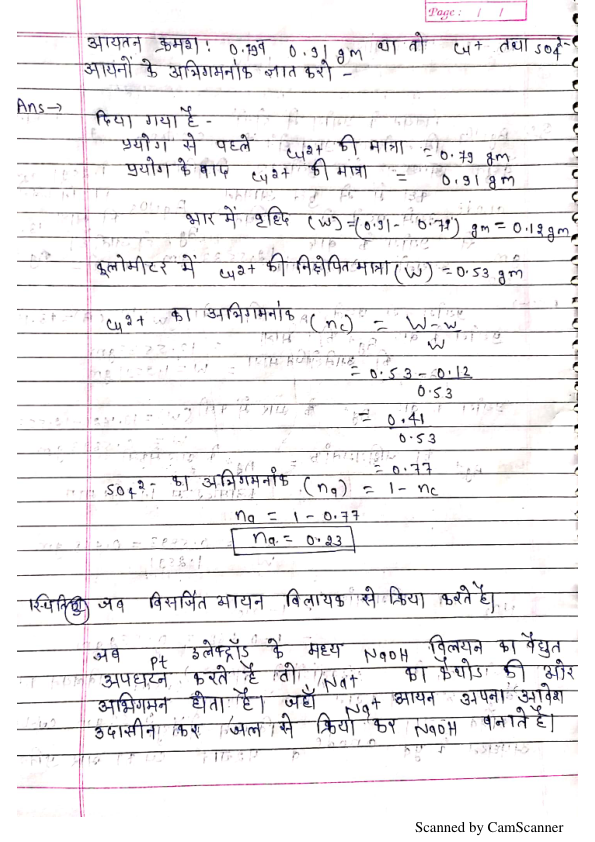 Page: / /
आयतन क्रमश: 0.79व 0.91 gm था तो Cu+ तथा SO4²⁻
आयनों के अभिगमनांक ज्ञात करो -
Ans →
दिया गया है -
प्रयोग से पहले Cu2+ की मात्रा = 0.79 gm
प्रयोग के बाद Cu2+ की मात्रा = 0.91 gm
भार में वृद्धि (W) = (0.91 - 0.79) gm = 0.12 gm
कूलोमीटर में Cu2+ की निक्षेपित मात्रा (W) = 0.53 gm
Cu2+ का अभिगमनांक (nc) = W-w
W
= 0.53 - 0.12
0.53
= 0.41
0.53
= 0.77
SO4²⁻ का अभिगमनांक (na) = 1 - nc
na = 1 - 0.77
na = 0.23
जब विसर्जित आयन विलायक से क्रिया करते है।
जब Pt इलेक्ट्रॉड के मध्य NaOH विलयन का वैद्युत
अपघटन करते है तो Na+ का कैथोड की ओर
अभिगमन होता है। जहाँ Na+ आयन अपना आवेश
उदासीन कर जल से क्रिया कर NaOH बनाते है।
Scanned by CamScanner